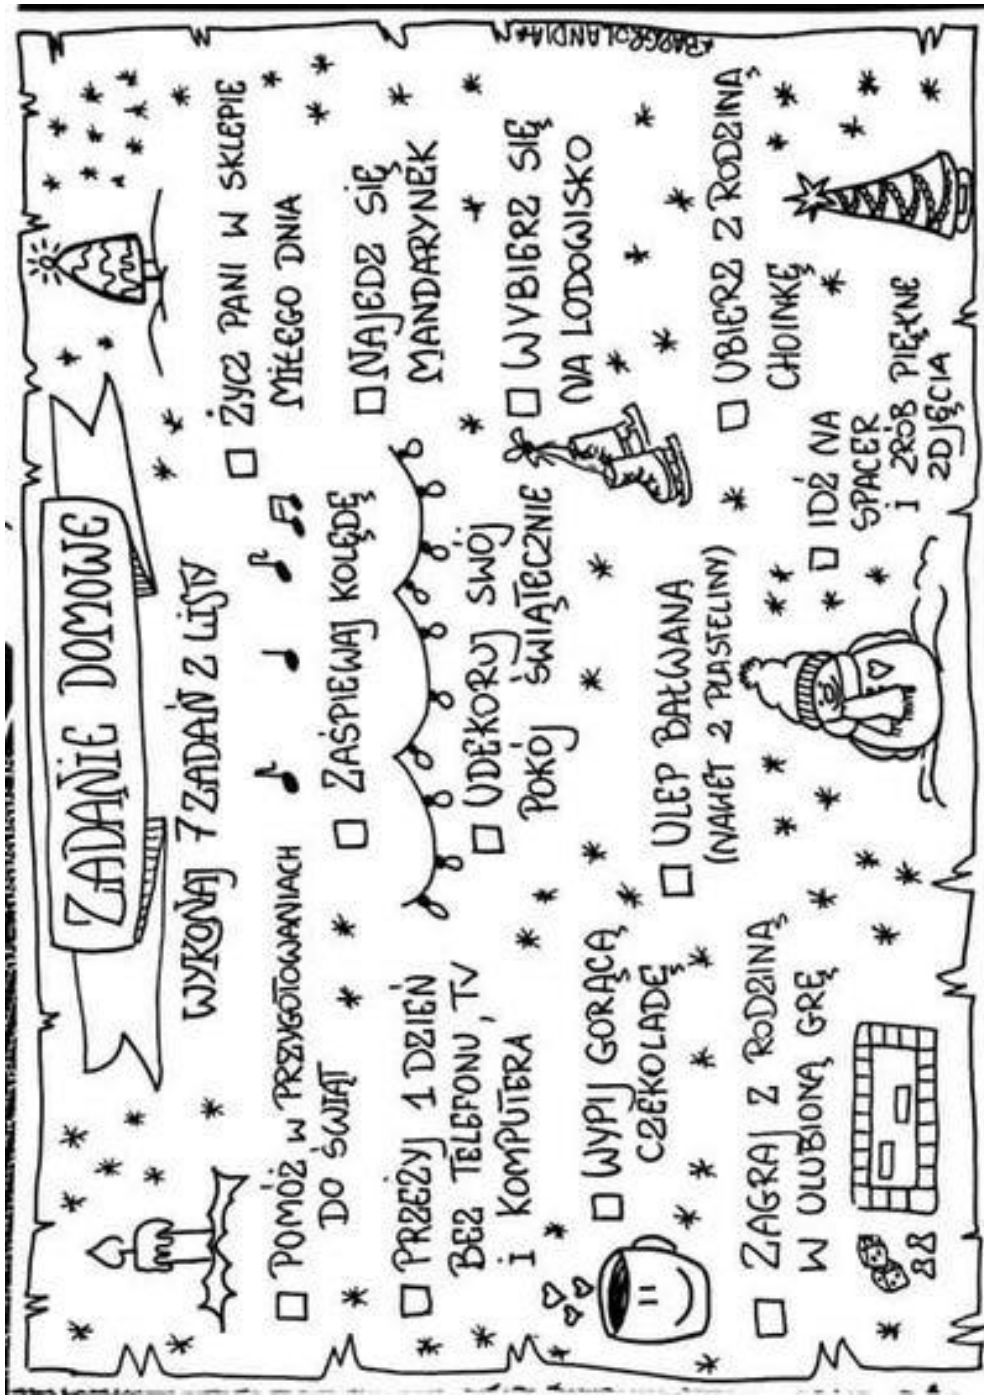 ZADANIE DOMOWE
WYKONAJ 7 ZADAŃ Z LISTY
POMÓŻ W PRZYGOTOWANIACH
DO ŚWIĄT
PRZEŻYJ 1 DZIEŃ
BEZ TELEFONU, TV
I KOMPUTERA
WYPIJ GORĄCĄ
CZEKOLADĘ
ZAGRAJ Z RODZINĄ
W ULUBIONĄ GRĘ
ZAŚPIEWAJ KOLĘDĘ
UDEKORUJ SWÓJ
POKÓJ ŚWIĄTECZNIE
ULEP BAŁWANA
(NAWET Z PLASTELINY)
IDŹ NA
SPACER
I ZRÓB PIĘKNE
ZDJĘCIA
ŻYCZ PANI W SKLEPIE
MIŁEGO DNIA
NAJEDZ SIĘ
MANDARYNEK
WYBIERZ SIĘ
NA LODOWISKO
UBIERZ Z RODZINĄ
CHOINKĘ